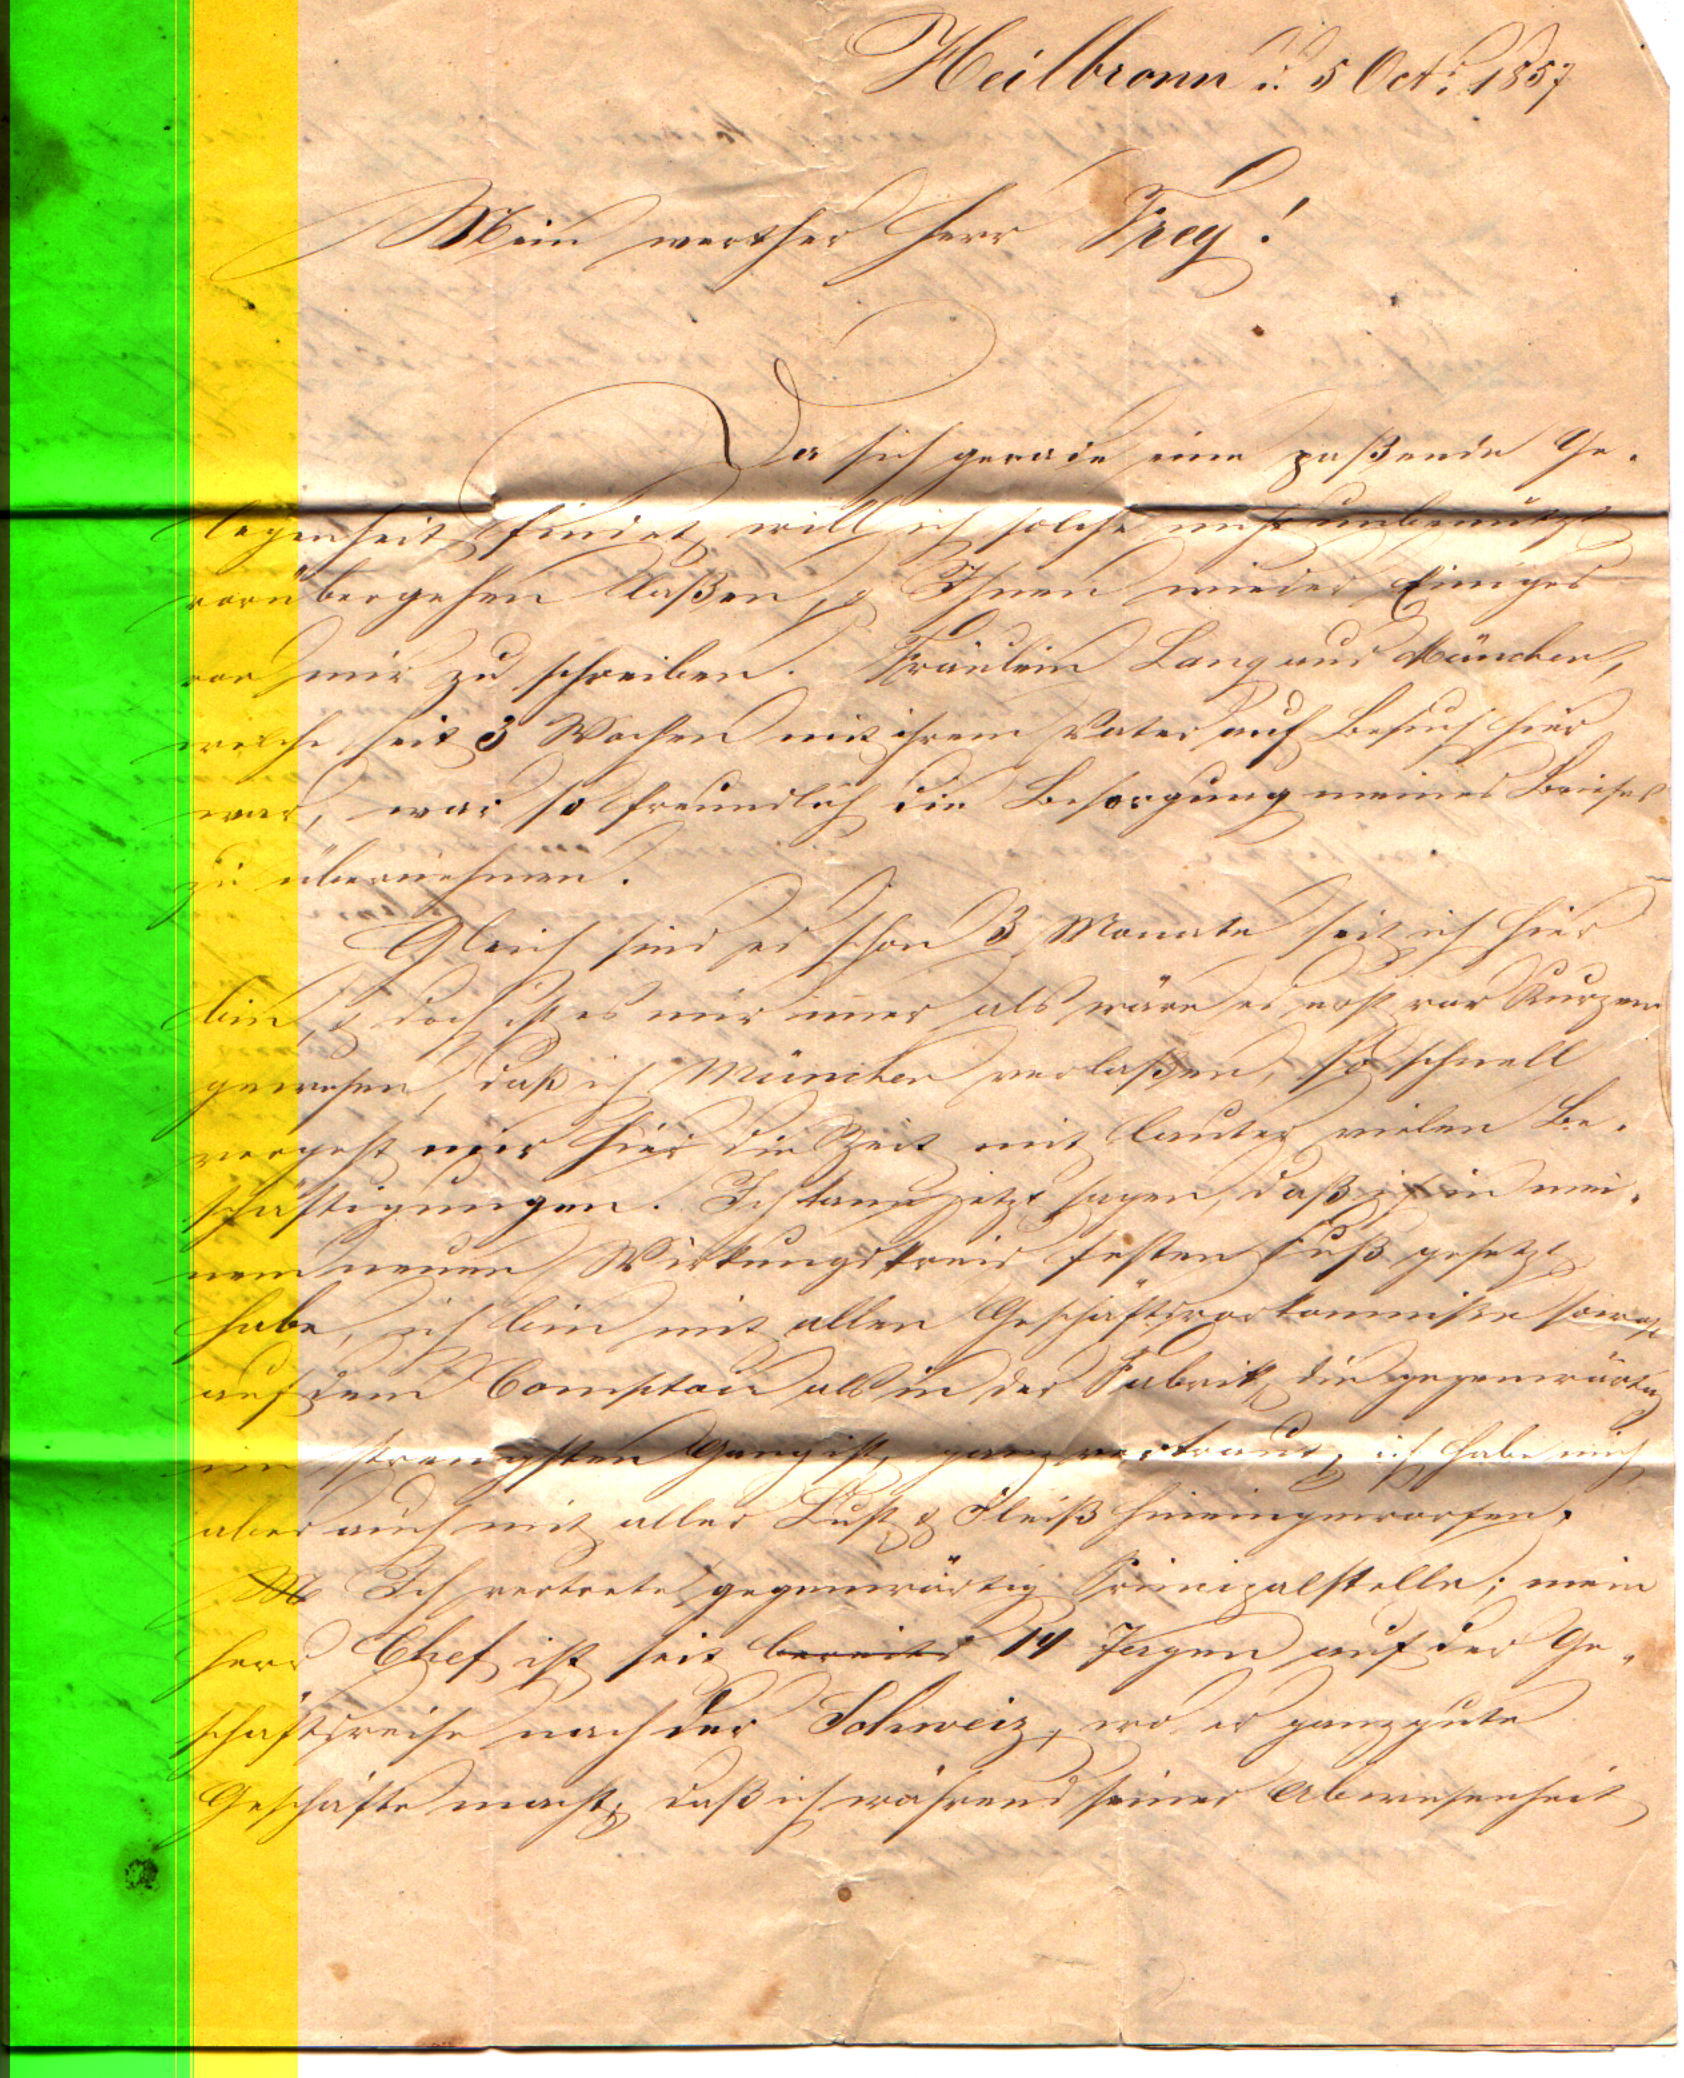 Heilbronn d. 5 Oct. 1857
Mein werther Herr Frey!
Da sich gerade eine paßende Ge-
legenheit findet, will ich solche nicht unbenützt
vorübergehen laßen, & Ihnen wieder Einiges
von mir zu schreiben. Fräulein Lang aus München,
welche seit 3 Wochen mit ihrem Vater auf Besuch hier
war, war so freundlich die Besorgung meines Briefes
zu übernehmen.
Gleich sind es schon 3 Monate seit ich hier
bin, & doch ist es mir immer als wäre es erst vor Kurzem
gewesen, daß ich München verlaßen, so schnell
vergeht mir hier die Zeit mit lauter vielen Be-
schäftigungen. Ich kann jetzt sagen, daß ich in mei-
nem neuen Wirkungskreis festen Fuß gesetzt
habe, ich bin mit allen Geschäftsvorkommniße sowohl
auf dem Comptoir als in der Fabrik, die gegenwärtig
im strengsten Gang ist, ganz vertraut, ich habe mich
aber auch mit aller Lust & Fleiß hineingeworfen.
Ich vertrete gegenwärtig Prinzipalstelle; mein
Herr Chef ist seit bereits 14 Tagen auf der Ge-
schäftsreise nach der Schweiz, wo er ganz gute
Geschäfte macht, daß ich während seiner Abwesenheit